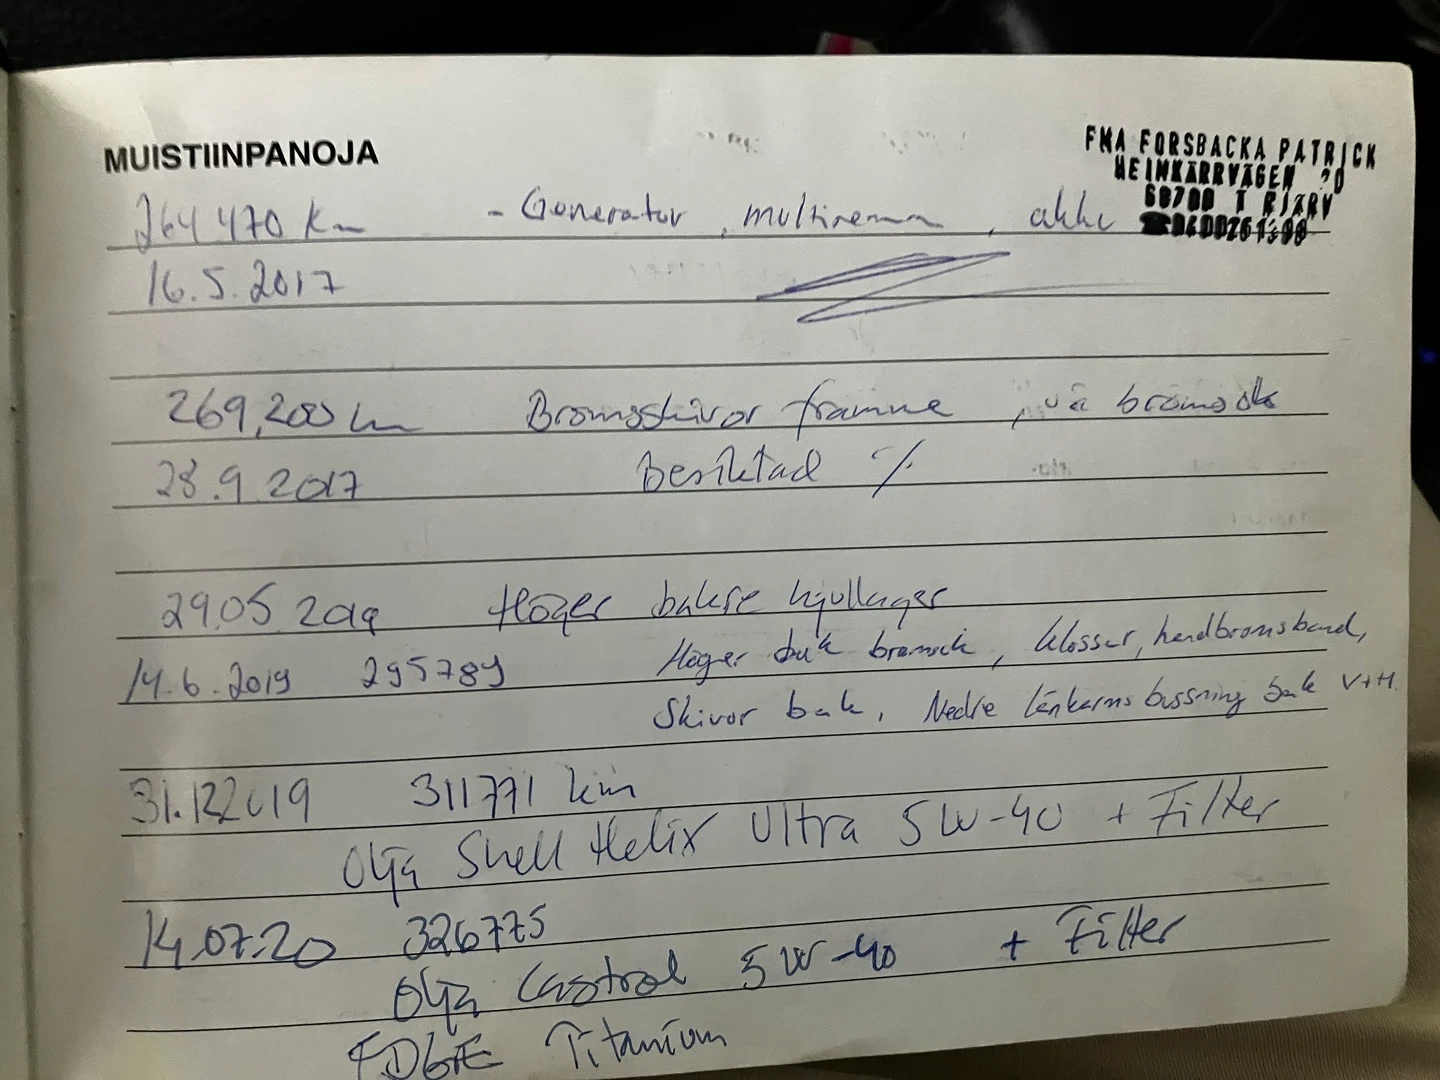 MUISTIINPANOJA
FMA FORSBACKA PATRICK
HEINKÄRRVÄGEN 20
68700 T RJÄRV
264 470 km - Generator, multiremm, akku
16.5.2017
269,200 km Bromsskivor framme, vä bromsok
28.9.2017 Besiktad %
29.05.2019 Höger bakre hjullager
14.6.2019 295789 Höger bak bromsok, klossar, handbromsband,
Skivor bak, Nedre länkarms bussning bak V+H.
31.12.2019 311771 km
Olja Shell Helix Ultra 5W-40 + Filter
14.07.20 326775
Olja Castrol 5W-40 + Filter
EDGE Titanium